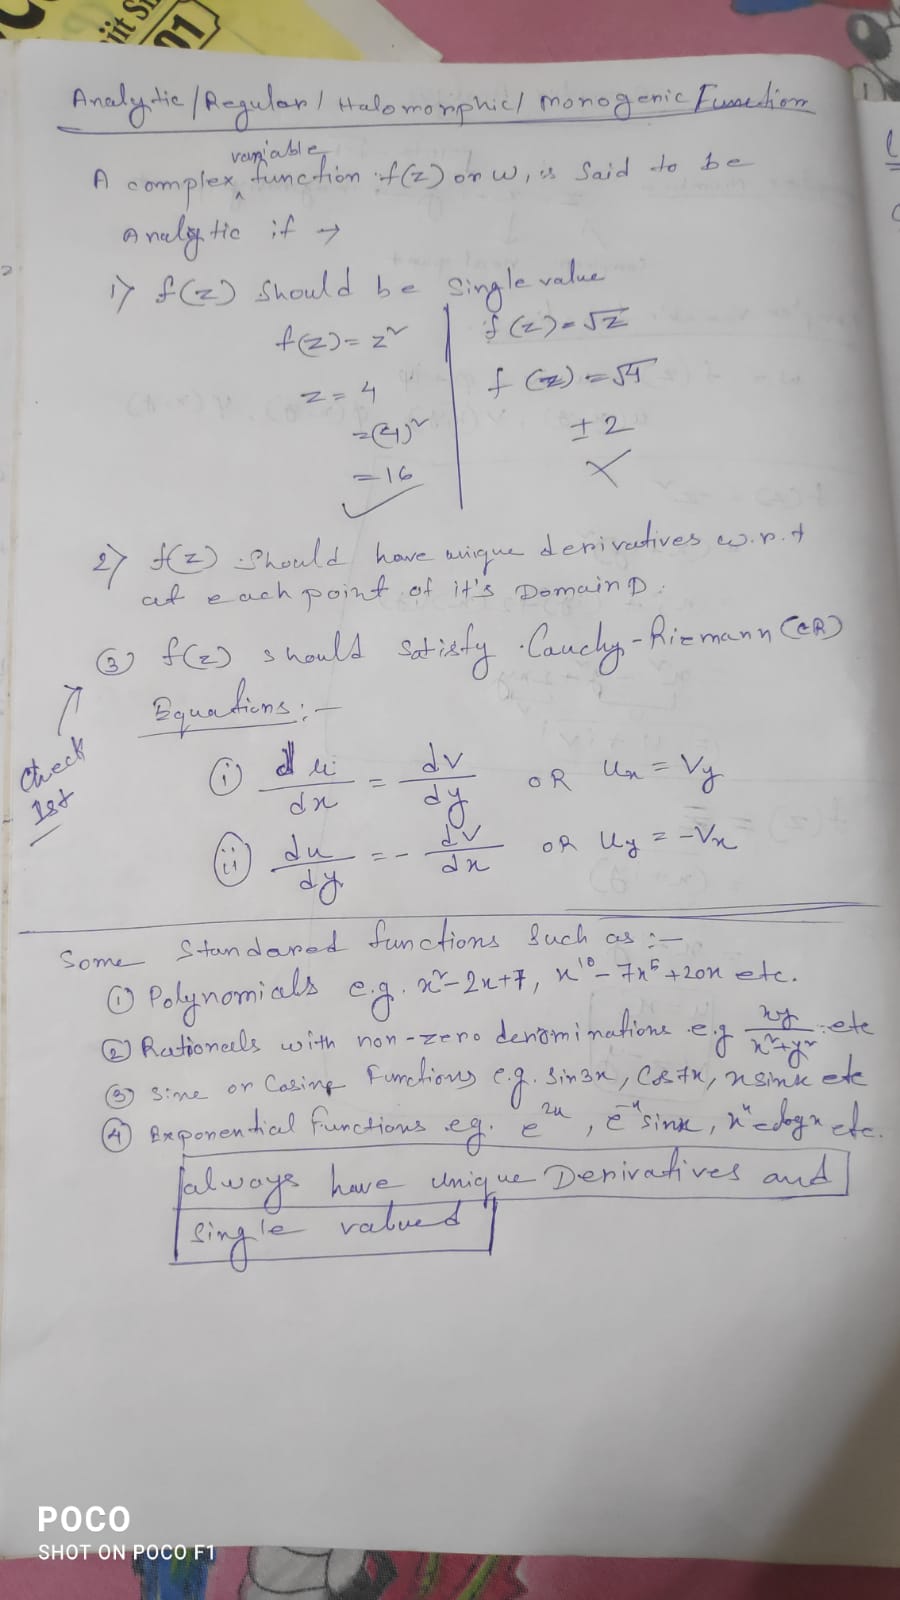 jit Si
01
Analytic/Regular/Halomorphic/monogenic Function
variable
A complex ^ function f(z) or w, is said to be
Analytic if →
1) f(z) should be single value
f(z) = z² | f(z) = √z
z = 4 | f(z) = √4
= (4)² | ± 2
= 16 ✓ | ×
2) f(z) should have unique derivatives w.r.t
at each point of it's Domain D.
③ f(z) should satisfy Cauchy-Riemann (CR)
Check 1st
Equations:-
(i) du/dx = dv/dy OR Ux = Vy
(ii) du/dy = - dv/dx OR Uy = -Vx
Some Standared functions such as :-
① Polynomials e.g. x²-2x+7, x¹⁰-7x⁵+20x etc.
② Rationals with non-zero denominations e.g xy/x²+y² etc
③ sine or Cosine Functions e.g. sin3x, cos7x, xsinx etc
④ Exponential functions eg. e²ˣ, e⁻ˣsinx, etc.
always have unique Derivatives and
single valued
POCO
SHOT ON POCO F1